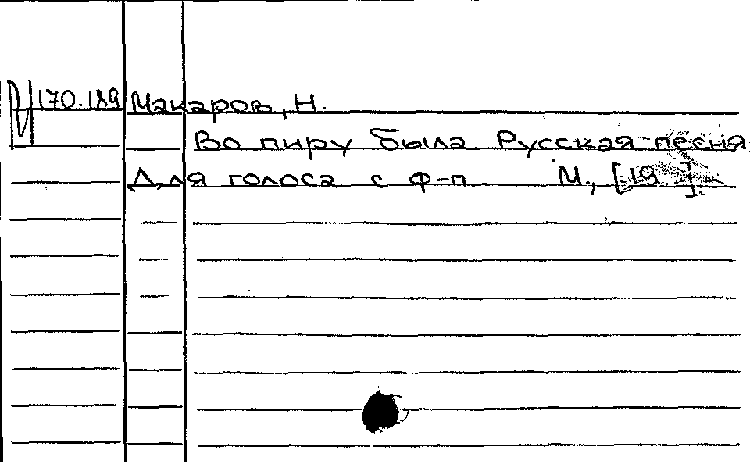 170.189 Макаров, Н.
Во пиру была Русская песня
Для голоса с ф-п М., [19 ].